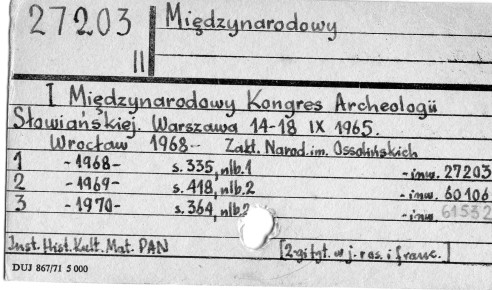 27203 Międzynarodowy
II
I Międzynarodowy Kongres Archeologii
Słowiańskiej. Warszawa 14-18 IX 1965.
Wrocław 1968- Zakł. Narod. im. Ossolińskich
1 -1968- s. 335, nlb. 1 -inw. 27203
2 -1969- s. 418, nlb. 2 -inw. 60106
3 -1970- s. 364, nlb. 2 -inw. 61532
Inst. Hist. Kult. Mat. PAN [2-gi tyt. w j. ros. i franc.]
DUJ 867/71 5 000